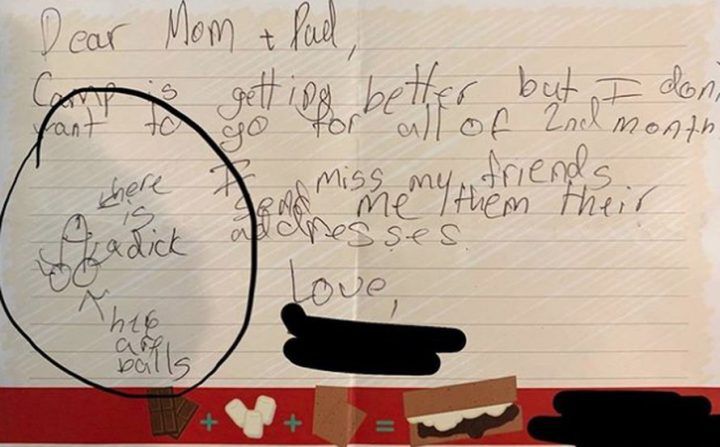 Dear Mom + Dad,
Camp is getting better but I don,
want to go for all of 2nd month
I miss my friends
send me them their
addresses.
Love,
here
is
a dick
here
are
balls
+ + =